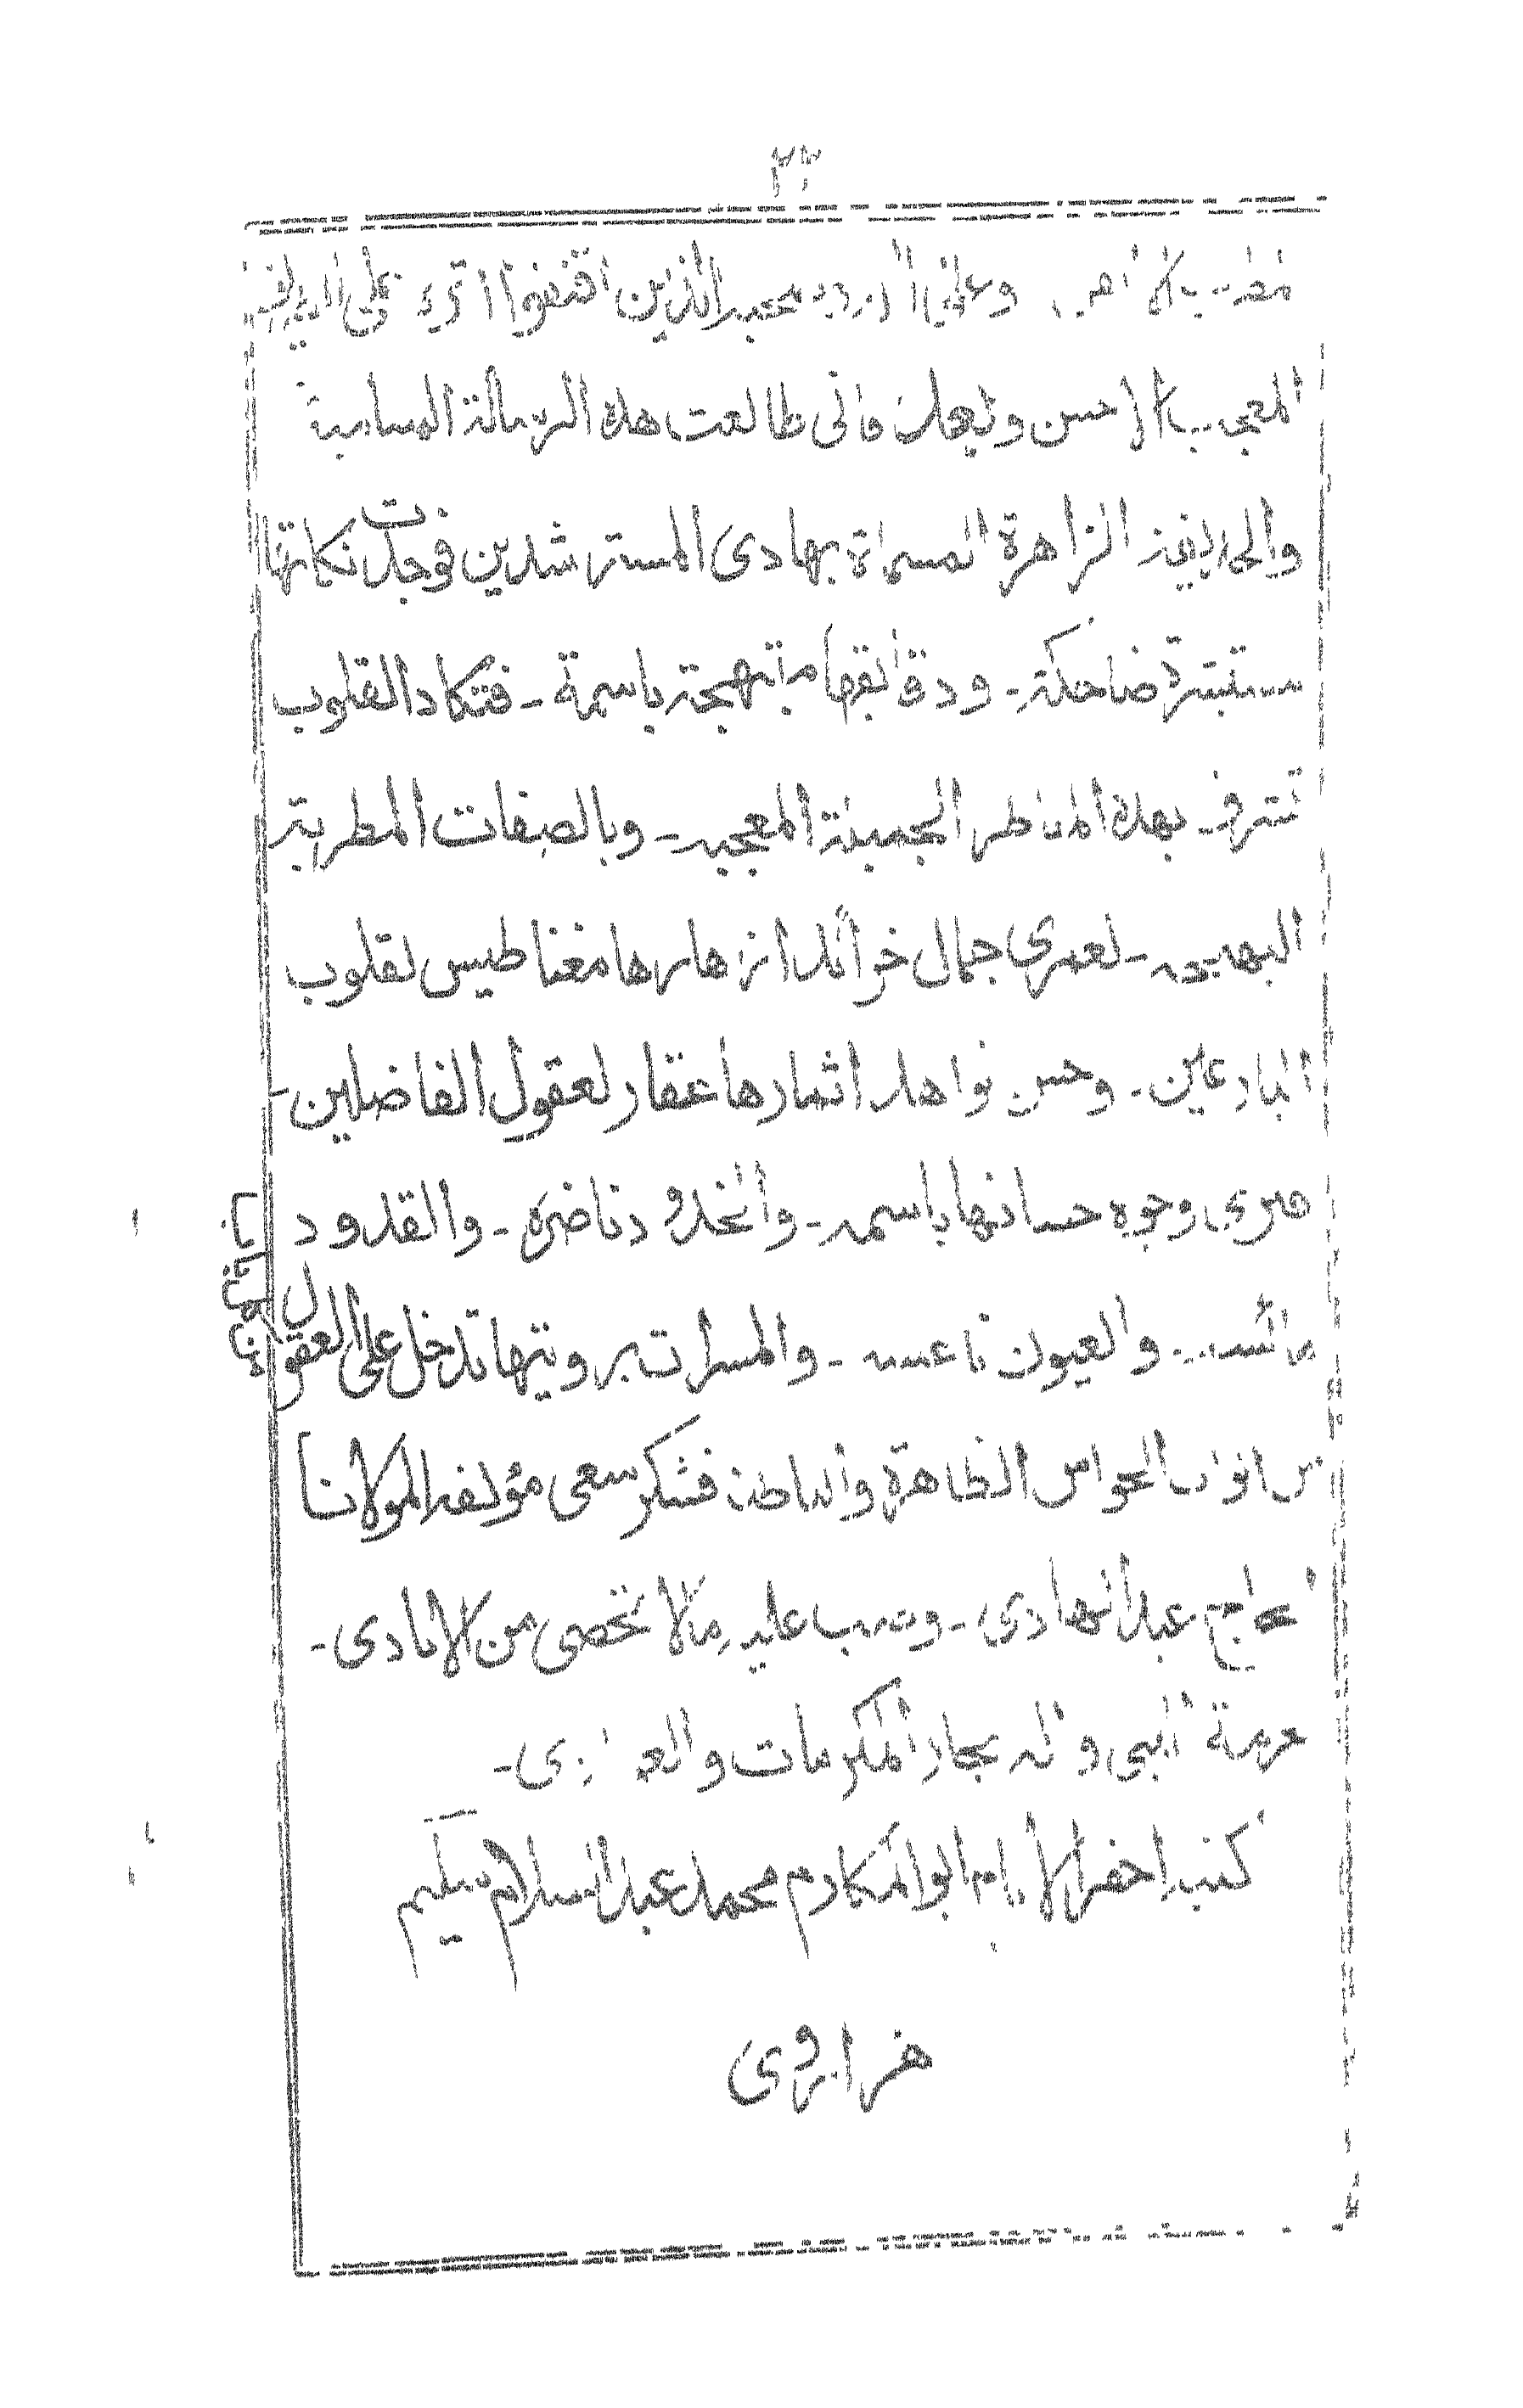 وصحبه الذين اقتفوا اثره على
المعجب الاحسن وبعد فانى طالعت هذه الرسالة السامية
والحديقة الزاهرة المسماة بهادى المسترشدين فوجدت نكاتها
مستبشرة ضاحكة - ودقائقها مبتهجة باسمة - فتكاد القلوب
تترف بهذه المناظر الجميلة المعجبه - وبالصفات المطربة
البهيجه - لعمرى جمال خرائد ازهارها مغناطيس لقلوب
البارعين - وحسن نواهد اثمارها عقار لعقول الفاضلين -
فترى وجوه حسانها باسمه - والخدود ناضره - والقدود
مائسه - والعيون ناعسه - والمسرات برويتها تدخل على العقول
من ابواب الحواس الظاهرة والباطنة فشكر سعى مؤلفه المولانا
الحاج عبد الهادى - وصب عليه مالا تحصى من الايادى -
بحرمة النبى واله بحار المكرمات
كتبه احقر الانام ابو المكارم محمد عبد السلام سليم
هزاروى